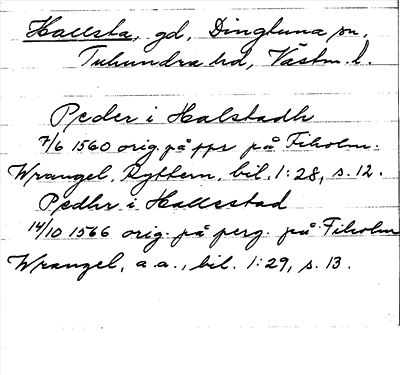 Hallsta, gd, Dingtuna sn,
Tuhundra hd, Västm. l.
Peder i Halstadh
7/6 1560 orig. på ppr på Fiholm.
Wrangel, Ryttern, bil. 1:28, s. 12.
Pedhr i Hallestad
14/10 1566 orig. på perg. på Fiholm
Wrangel, a.a., bil. 1:29, s. 13.